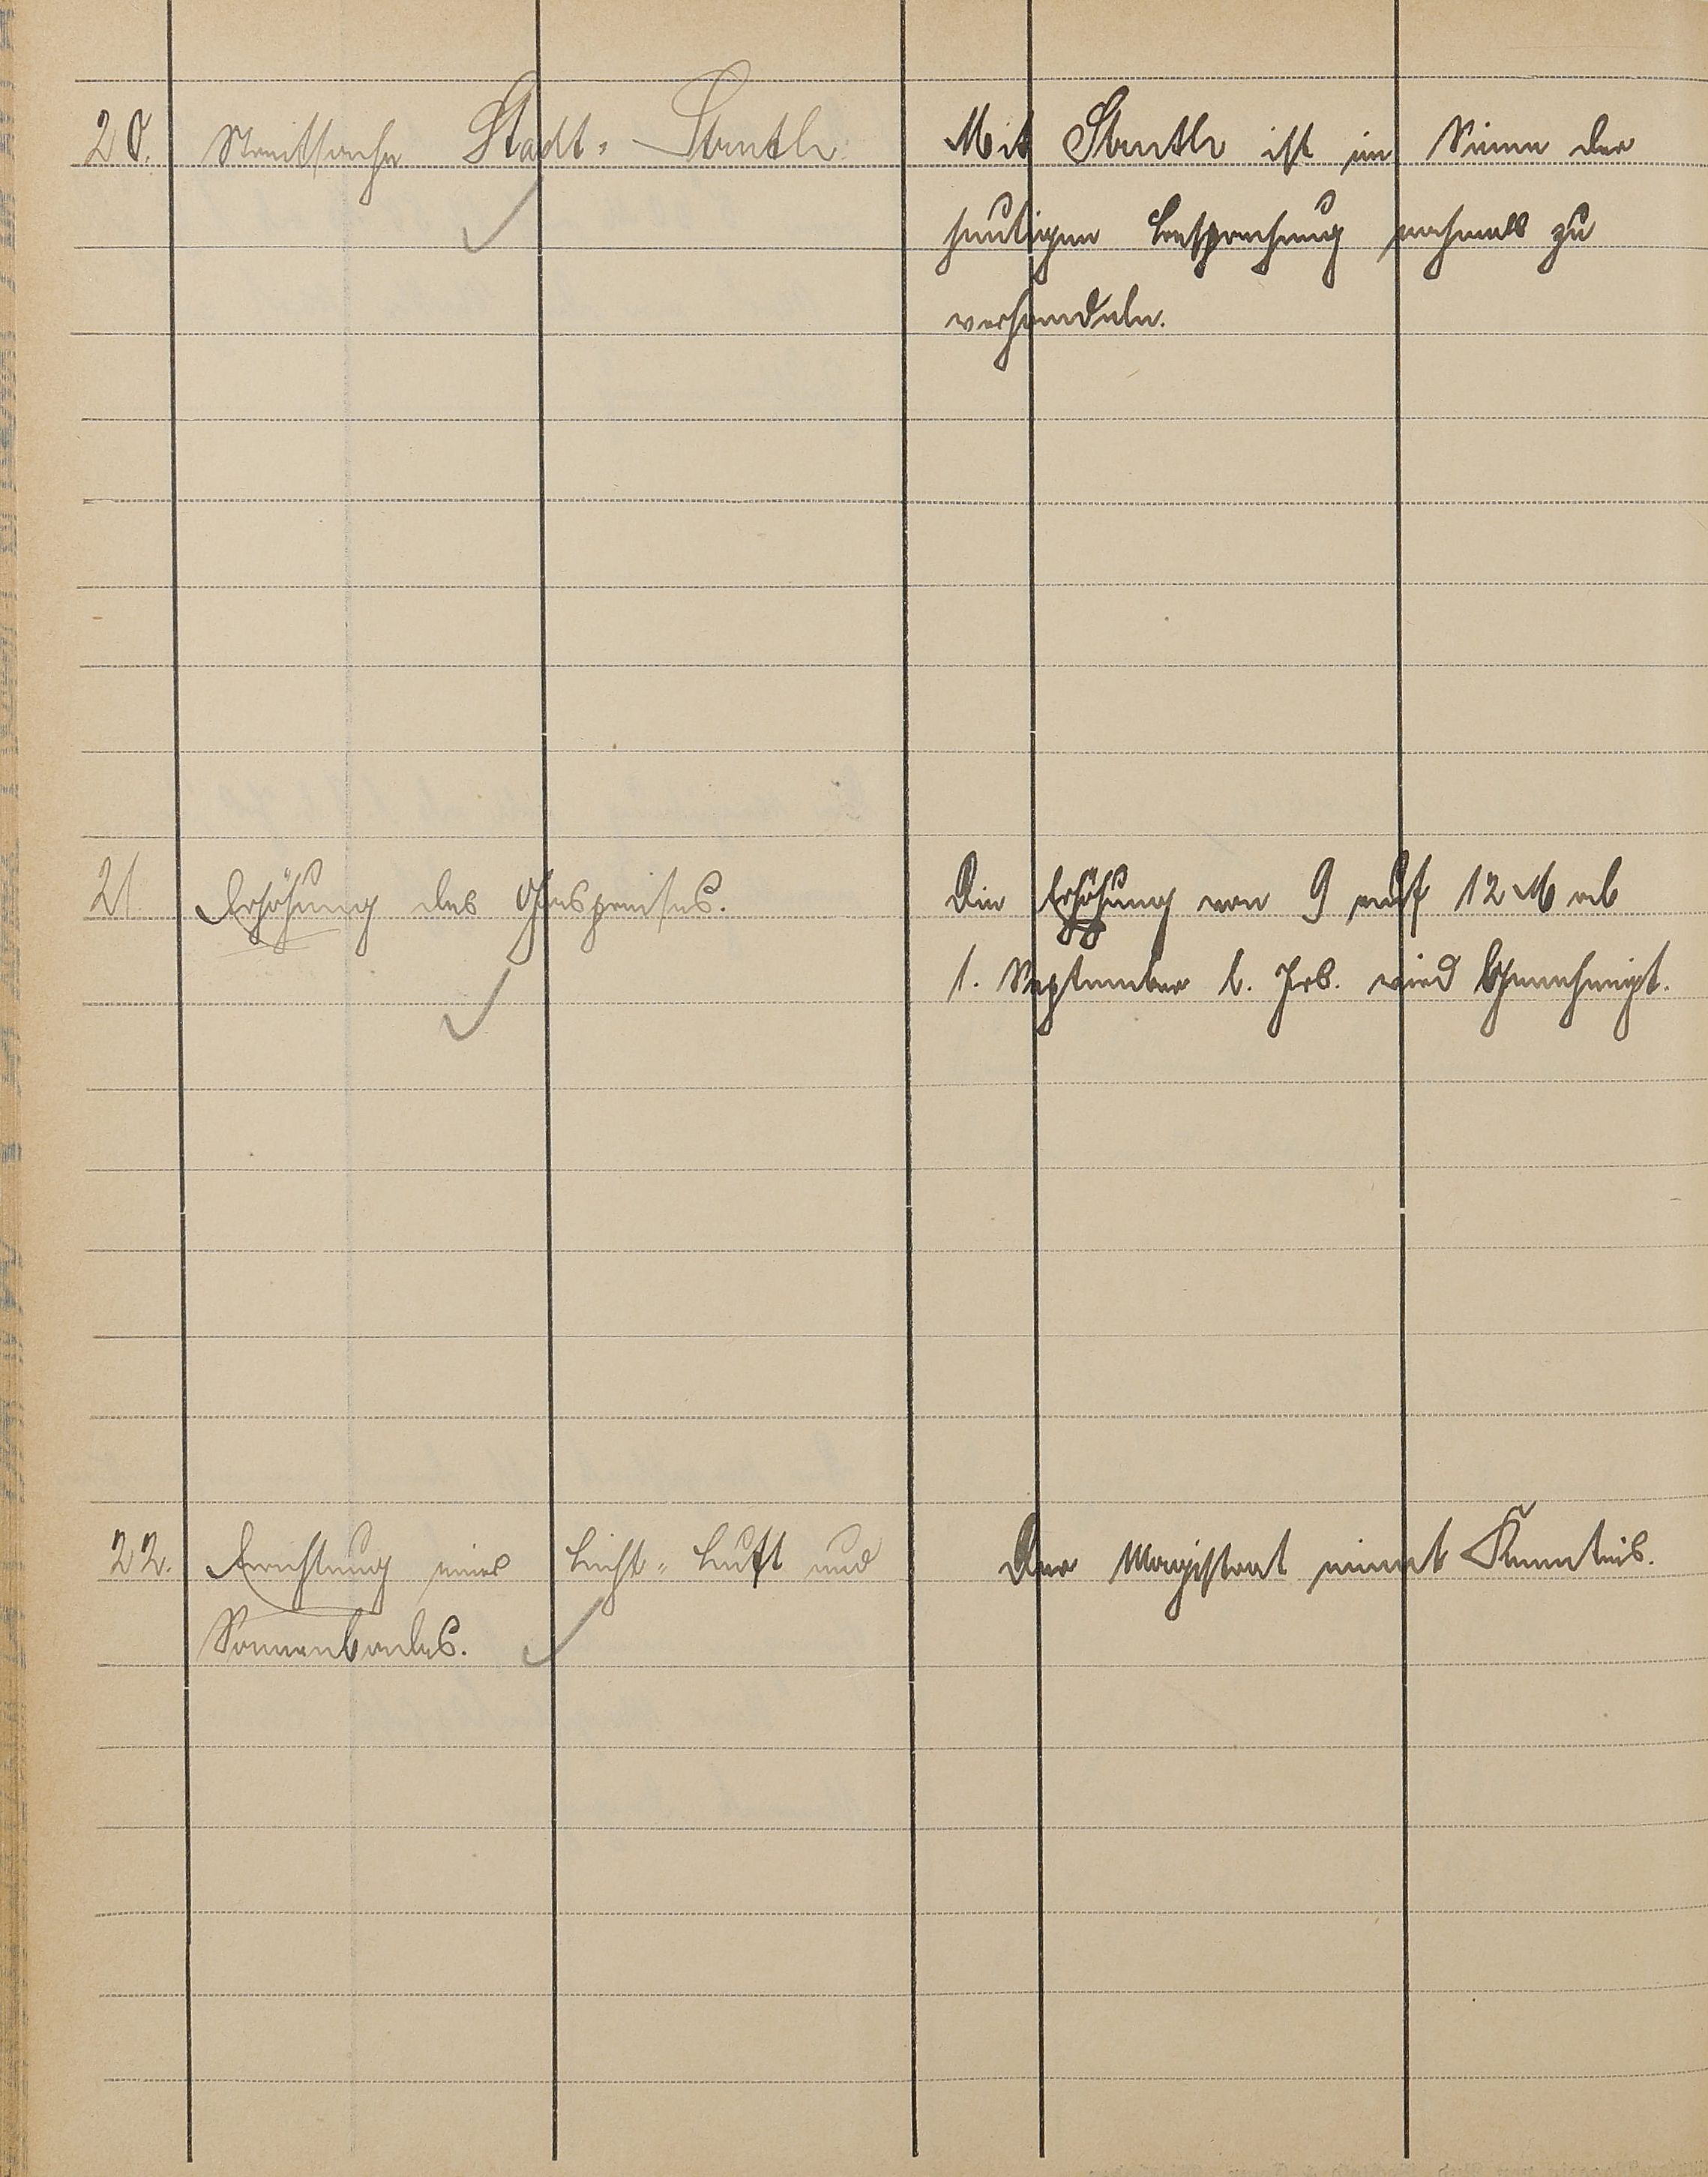 20. Streitsache Stadt-Strutli
Mit Strutli ist im Sinne der
heutigen Besprechung nochmals zu
verhandeln.
21. Erhöhung des Gaspreises.
Die Erhöhung von 9 auf 12 M ab
1. September l. Jrs. wird Genehmigt.
22. Errichtung eines Licht- Luft und
Sonnenbades.
Der Magistrat nimmt Kenntnis.